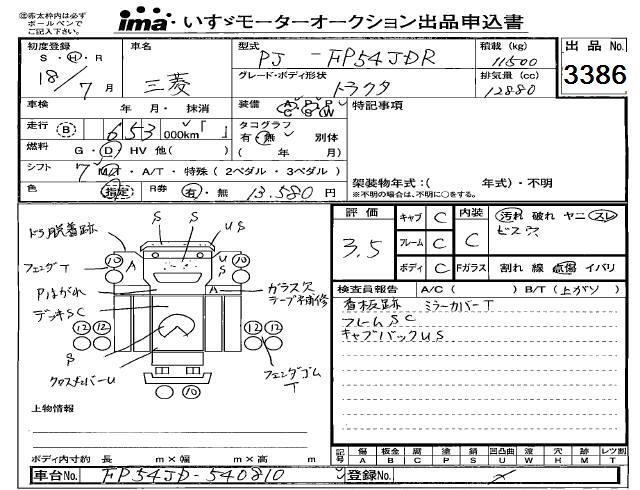 ㊟赤太枠内は必ず
ボールペンで
ご記入下さい。
ima・いすゞモーターオークション出品申込書
初度登録 S・H・R 18/7月
車名 三菱
型式 PJ-FP54JDR
積載(kg) 11500
出品No. 3386
グレード・ボディ形状 トラクタ
排気量(cc) 12880
車検 年 月・ 抹消
装備 A/C P/S P/W
特記事項
走行 B 653 000km「 」
タコグラフ 有・無 別体
( 年 月)
燃料 G・D HV 他( )
シフト 7 MT・A/T・特殊(2ペダル・3ペダル)
色 指定 R券 有・無 13.580円
架装物年式:( 年式)・不明
※不明の場合は、不明に○をする。
評価 3.5
キャブ C
フレーム C
ボディ C
内装 C
汚れ 破れ ヤニ スレ
ビス穴
Fガラス 割れ 線 点傷 イバリ
検査員報告 A/C( ) B/T(上がソ)
看板跡 ミラーカバーT
フレームSC
キャブバックUS
ドラ脱着跡
S
S
US
フェンダT
10
A
U
S
10
Pはがれ
A
ガラス欠
テープ補修
デッキSC
12 12
12 12
S
クロスメンバーU
フェンダゴム
T
10
上物情報
ボディ内寸約 長 m×幅 m×高 m
記号 傷A 板金B 腐C 塗P 錆S 凹凸曲U 渡W 穴H 跡M レツ割T
車台No. FP54JD-540810
登録No.